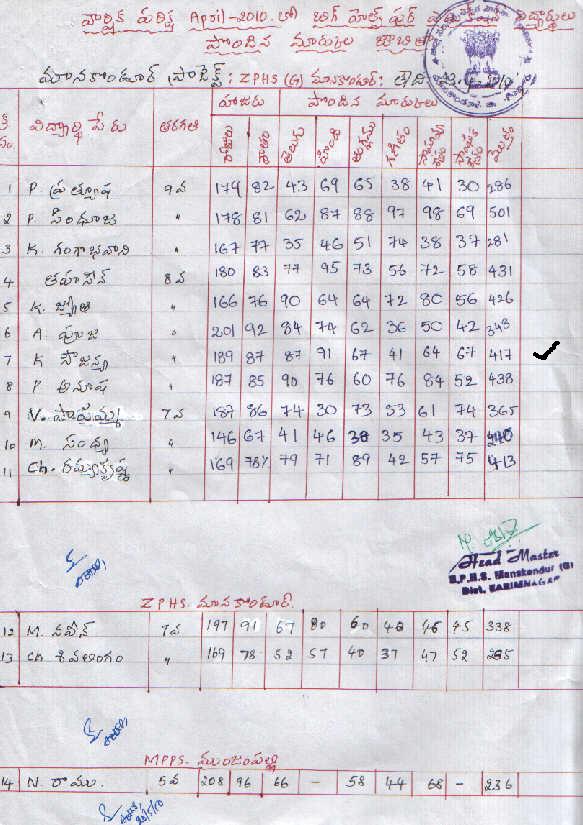 వార్షిక పరీక్ష April-2010. లో బిగ్ హెల్ప్ ఫర్ విద్యార్థులు
పొందిన మార్కుల
మానకొండూర్ ప్రాజెక్ట్ : ZPHS (G) మానకొండూర్:
హాజరు పొందిన మార్కులు
విద్యార్థి పేరు తరగతి హాజరు శాతం తెలుగు హిందీ ఇంగ్లీషు గణితం మొత్తం
1 P. ప్రత్యూష 9వ 179 82 43 69 65 38 41 30 286
2 P. సింధూజ " 178 81 62 87 88 97 98 69 501
3 K. గంగాభవాని " 167 77 35 46 51 74 38 37 281
4 తహసీన్ 8వ 180 83 77 95 73 56 72 58 431
5 K. జ్యోతి " 166 76 90 64 64 72 80 56 426
6 A. పూజ " 201 92 84 74 62 36 50 42 348
7 K సౌజన్య " 189 87 87 91 67 41 64 67 417
8 P అనూష " 187 85 90 76 60 76 84 52 438
9 N. పోషమ్మ 7వ 187 86 74 30 73 53 61 74 365
10 M. సంధ్య " 146 67 41 46 38 35 43 37 240
11 Ch. రమ్యకృష్ణ " 169 78% 79 71 89 42 57 75 413
Head Master
Z.P.H.S. Manakondur (G)
Dist. KARIMNAGAR
ZPHS. మానకొండూర్.
12 M. నవీన్ 7వ 197 91 67 80 60 46 46 45 338
13 Ch. శివలింగం " 169 78 52 57 40 37 47 52 285
MPPS. ముంజంపల్లి
14 N. రాము. 5వ 208 96 66 - 58 44 68 - 236